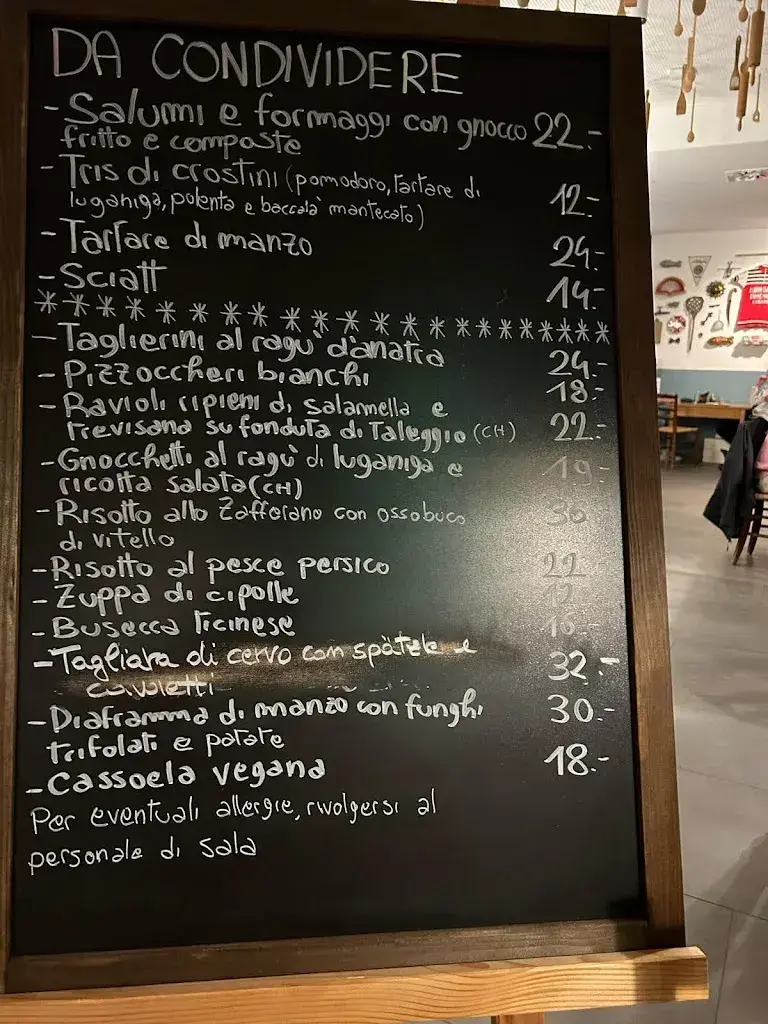 DA CONDIVIDERE
- Salumi e formaggi con gnocco 22.-
fritto e composte
- Tris di crostini (pomodoro, tartare di
luganiga, polenta e baccalà mantecato) 12.-
- Tartare di manzo 24.-
- Sciatt 14.-
* * * * * * * * * * * * * * * * * * * *
- Taglierini al ragù d'anatra 24.-
- Pizzoccheri bianchi 18.-
- Ravioli ripieni di salamella e
trevisana su fonduta di Taleggio (CH) 22.-
- Gnocchetti al ragù di luganiga e 19.-
ricotta salata (CH)
- Risotto allo Zafferano con ossobuco 36
di vitello
- Risotto al pesce persico 22
- Zuppa di cipolle 12
- Busecca Ticinese 16.-
- Tagliata di cervo con spätzle e 32.-
cavoletti
- Diaframma di manzo con funghi 30.-
trifolati e patate
- Cassoela vegana 18.-
Per eventuali allergie, rivolgersi al
personale di sala